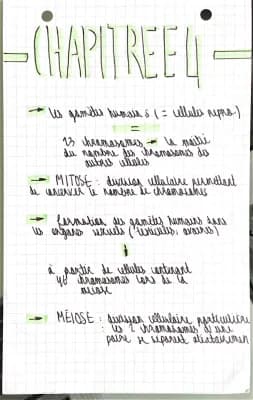 CHAPITREE 4
→ Les gamètes humains (= cellules repro.)
=
23 chromosomes → la moitié
du nombre des chromosomes des
autres cellules
→ MITOSE : division cellulaire permettant
de conserver le nombre de chromosomes
→ Formation des gamètes humains dans
les organes sexuels (testicules, ovaires)
à partir de cellules contenant
46 chromosomes lors de la
méiose
→ MÉIOSE : division cellulaire particulière
: les 2 chromosomes d'une
paire se séparent aléatoirement